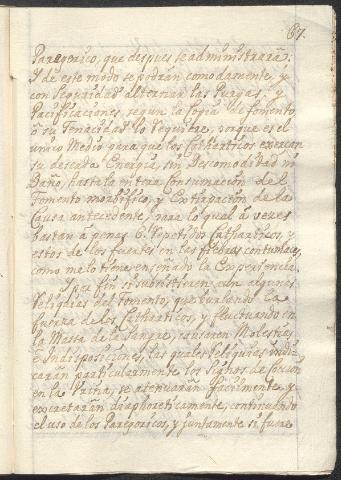 87.
Paregorico, que despues se administrarán:
Y de este modo se podrán comodamente, y
con Seguridad alternar las Purgas, y
Pacificaciones, segun la Copia de fomento,
ô su Tenacidad lo requiere, porque es el
unico Medio para que los Cathârticos exerzan
su deseada Energia, sin Descomodidad ni
Daño, hasta la entera Consumacion del
Fomento morbifico, y Extirpacion de la
Causa antecedente, para lo qual â veces
bastan â penas 6. repetidos Cathârticos, y
estos de los fuertes en las fiebres contumaces,
como me lo tiene enseñado la Experiencia.
Y por fin si subsistieren aun algunas
Reliquias del fomento, que burlando la
fuerza de los Cathârticos, y fluctuando en
la Massa de la Sangre, causaren Molestias
e Indisposiciones, las quales reliquias indi-
carán particularmente los Signos de Coccion
en la Orina, se atenuarán facilmente, y
excretarán diaphoreticamente, continuando
el uso de los Paregoricos, y juntamente si fuere